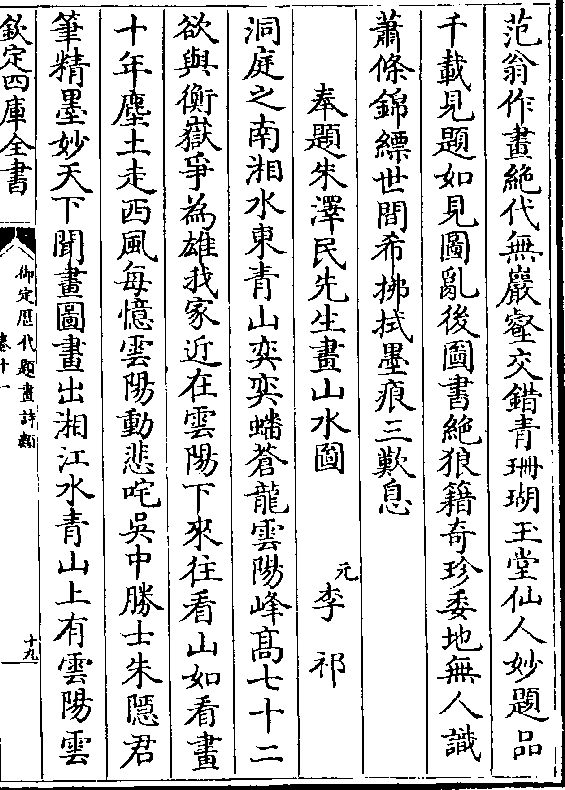 范翁作畫絶代無巖壑交錯青珊瑚玉堂仙人妙題品
千載見題如見圖亂後圖書絶狼籍奇珍委地無人識
蕭條錦縹世間希拂拭墨痕三歎息
奉題朱澤民先生畫山水圖
元李祁
洞庭之南湘水東青山奕奕蟠蒼龍雲陽峰髙七十二
欲與衡嶽爭為雄我家近在雲陽下來往看山如看畫
十年塵土走西風每憶雲陽動悲咤吳中勝士朱隱君
筆精墨妙天下聞畫圖畫出湘江水青山上有雲陽雲
欽定四庫全書
御定歴代題畫詩類
卷十一
十九